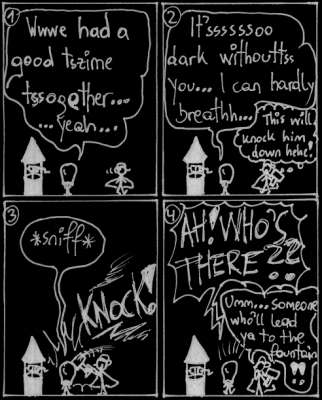 1
Wwwe had a
good tszime
tssogether...
...yeah....
2
It'ssssssoo
dark withouttss
you... I can hardly
breathh...
This will
knock him
down hehe!
3
*sniff*
KNOCK!
4
AH! WHO'S
THERE??
Umm... someone
who'll lead
ya to the
fountain